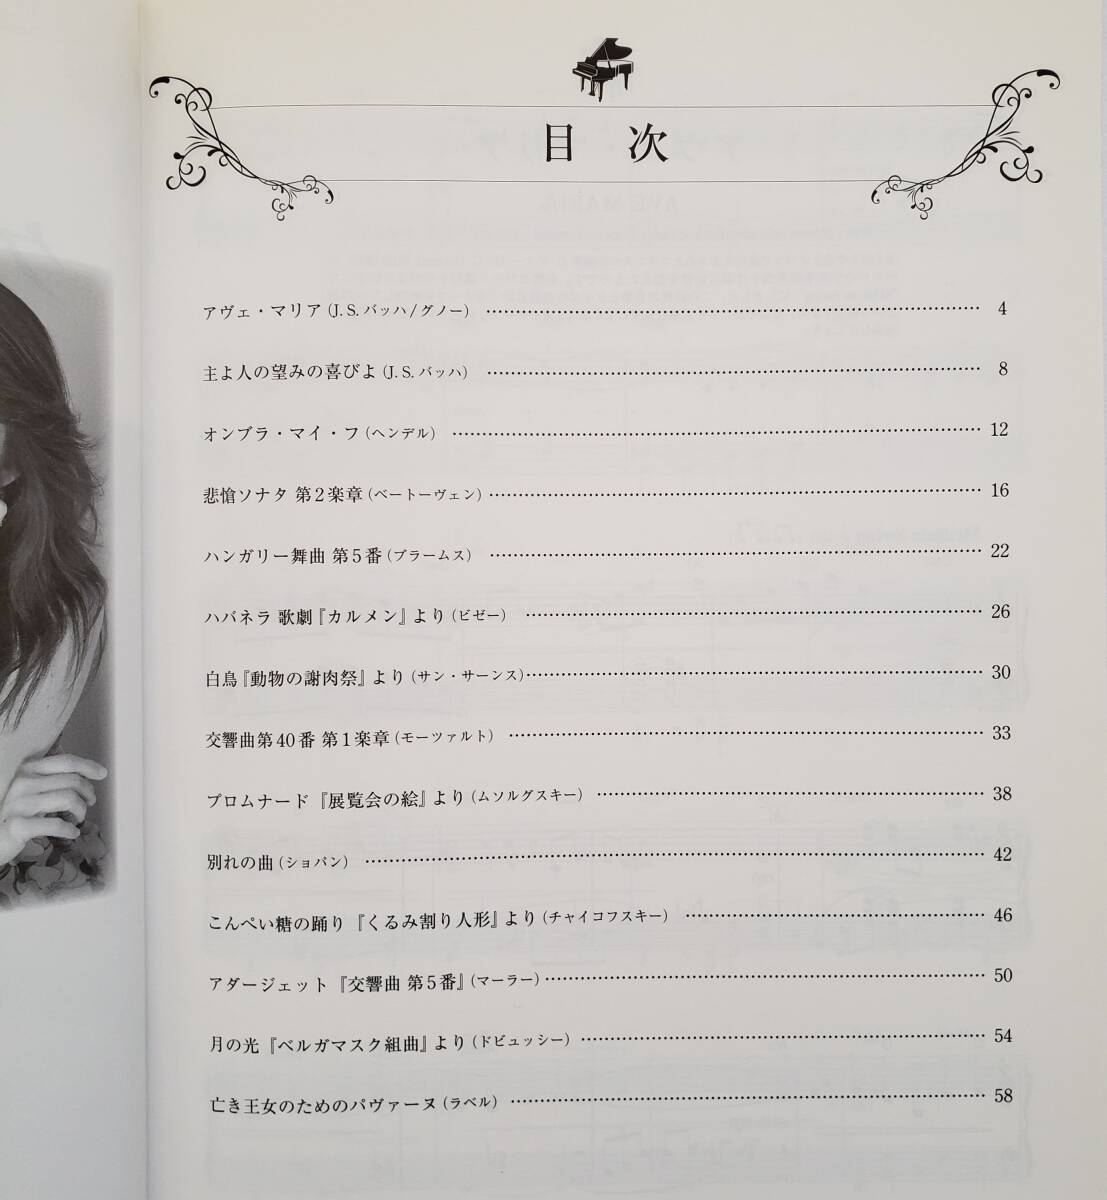 目次
アヴェ・マリア(J.S.バッハ/グノー) 4
主よ人の望みの喜びよ(J.S.バッハ) 8
オンブラ・マイ・フ(ヘンデル) 12
悲愴ソナタ 第2楽章(ベートーヴェン) 16
ハンガリー舞曲 第5番(ブラームス) 22
ハバネラ 歌劇『カルメン』より(ビゼー) 26
白鳥『動物の謝肉祭』より(サン・サーンス) 30
交響曲第40番 第1楽章(モーツァルト) 33
プロムナード『展覧会の絵』より(ムソルグスキー) 38
別れの曲(ショパン) 42
こんぺい糖の踊り『くるみ割り人形』より(チャイコフスキー) 46
アダージェット『交響曲 第5番』(マーラー) 50
月の光『ベルガマスク組曲』より(ドビュッシー) 54
亡き王女のためのパヴァーヌ(ラベル) 58